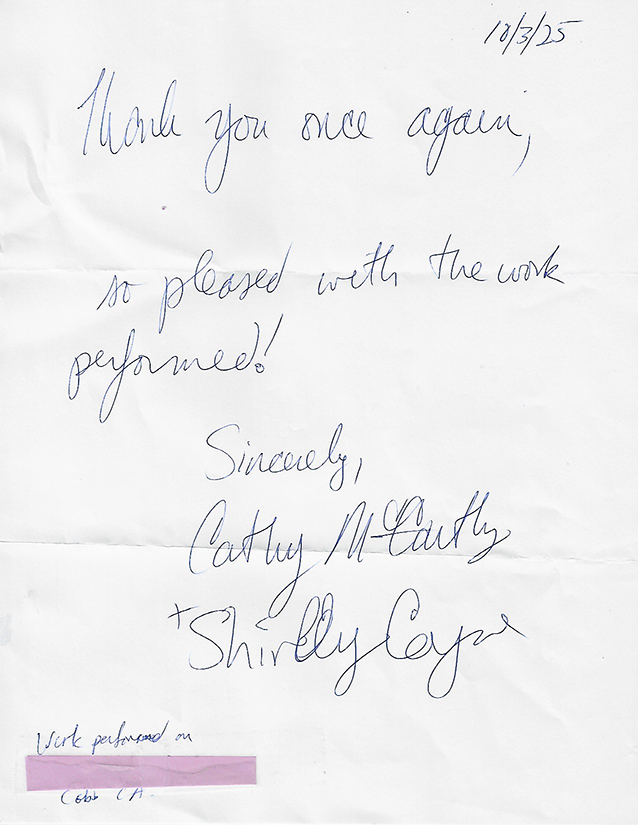 10/3/25
Thank you once again,
so pleased with the work
performed!
Sincerely,
Cathy McCarthy
+ Shirlly
Work performed on
Cobb CA.